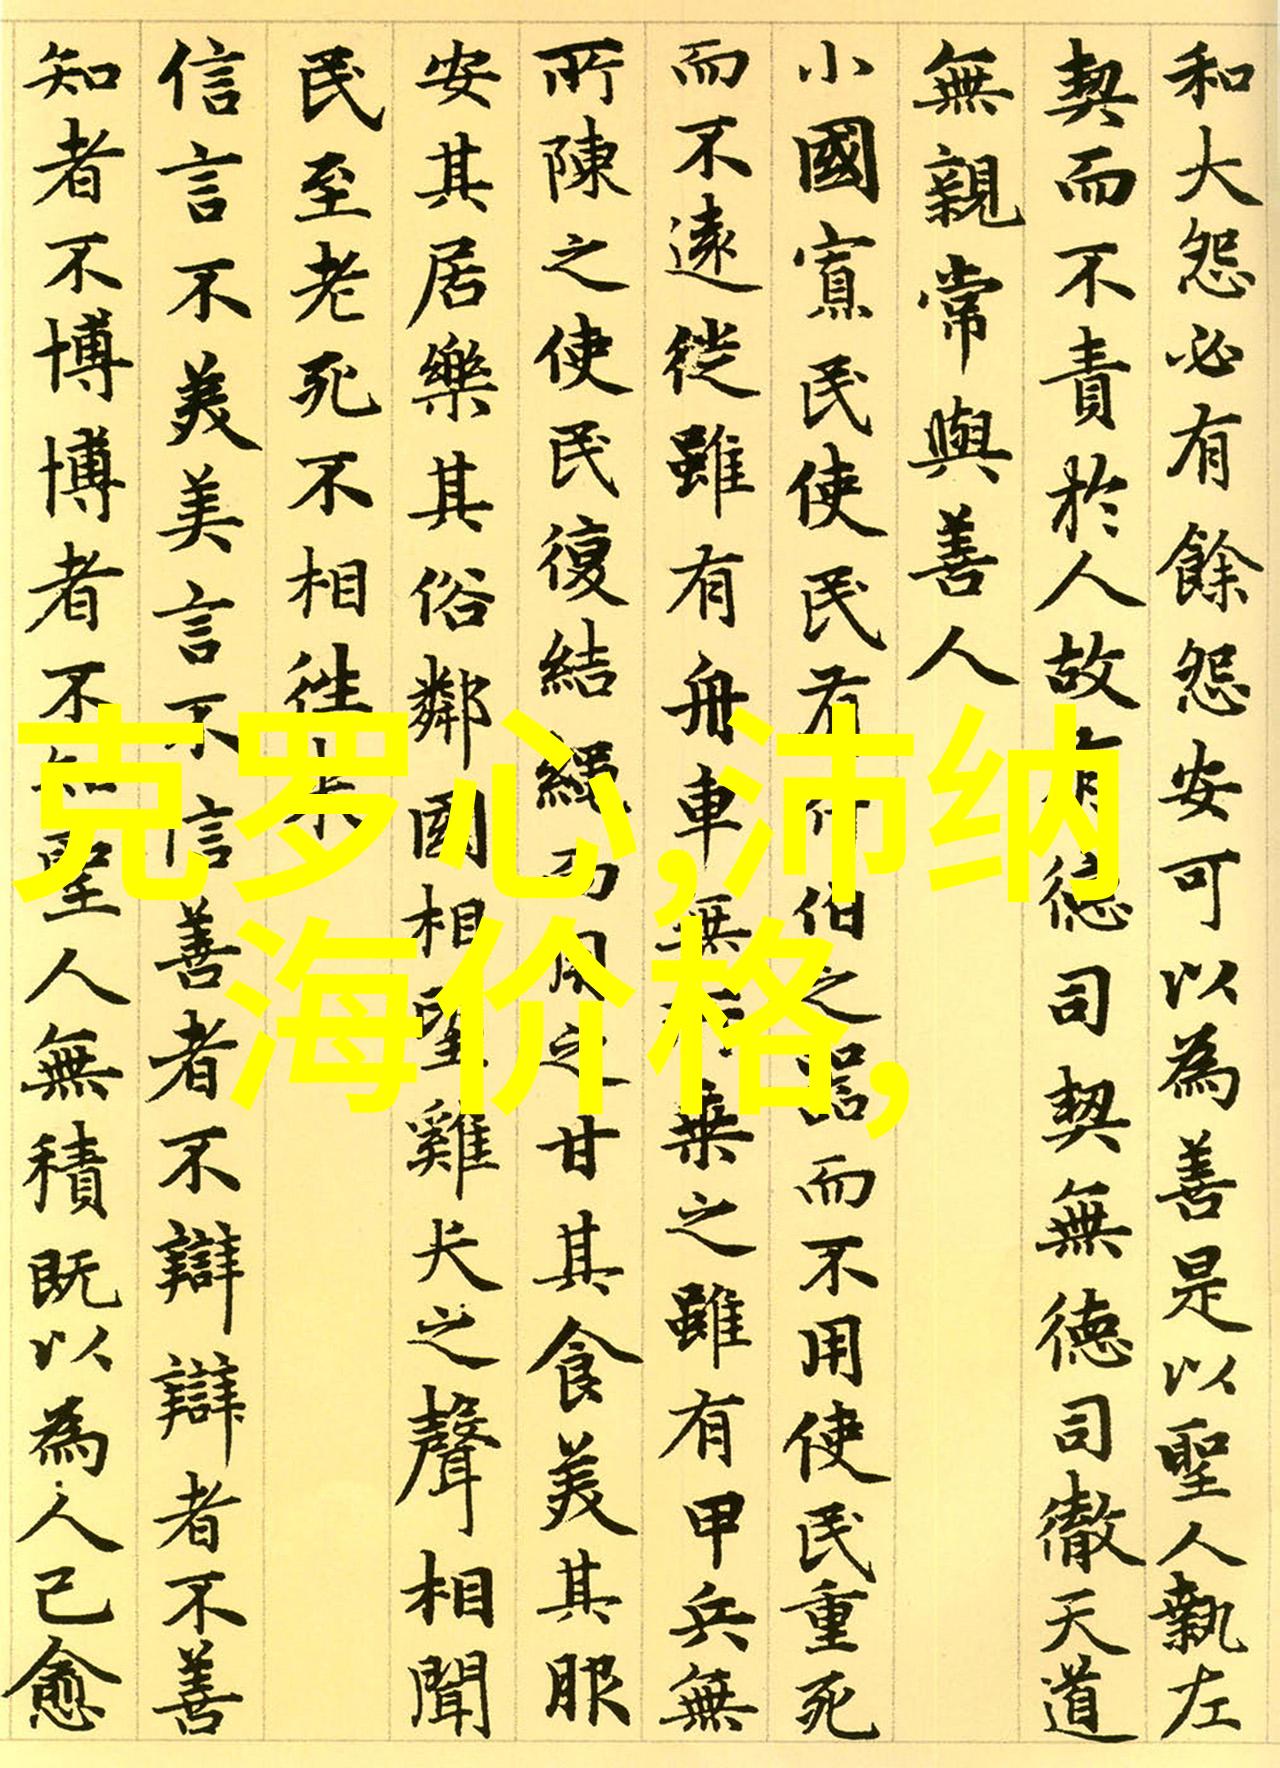 和大怨必有餘怨安可以為善是以聖人執左
契而不責於人故有德司契無德司徹天道
無親常與善人
小國寡民使民有什伯之器而不用使民重死
而不遠徙雖有舟車無所乗之雖有甲兵無
所陳之使民復結繩而用之甘其食美其服
安其居樂其俗鄰國相望雞犬之聲相聞
民至老死不相往来
信言不美美言不信善者不辯辯者不善
知者不博博者不知聖人無積既以為人己愈
克罗心,沛纳
海价格,